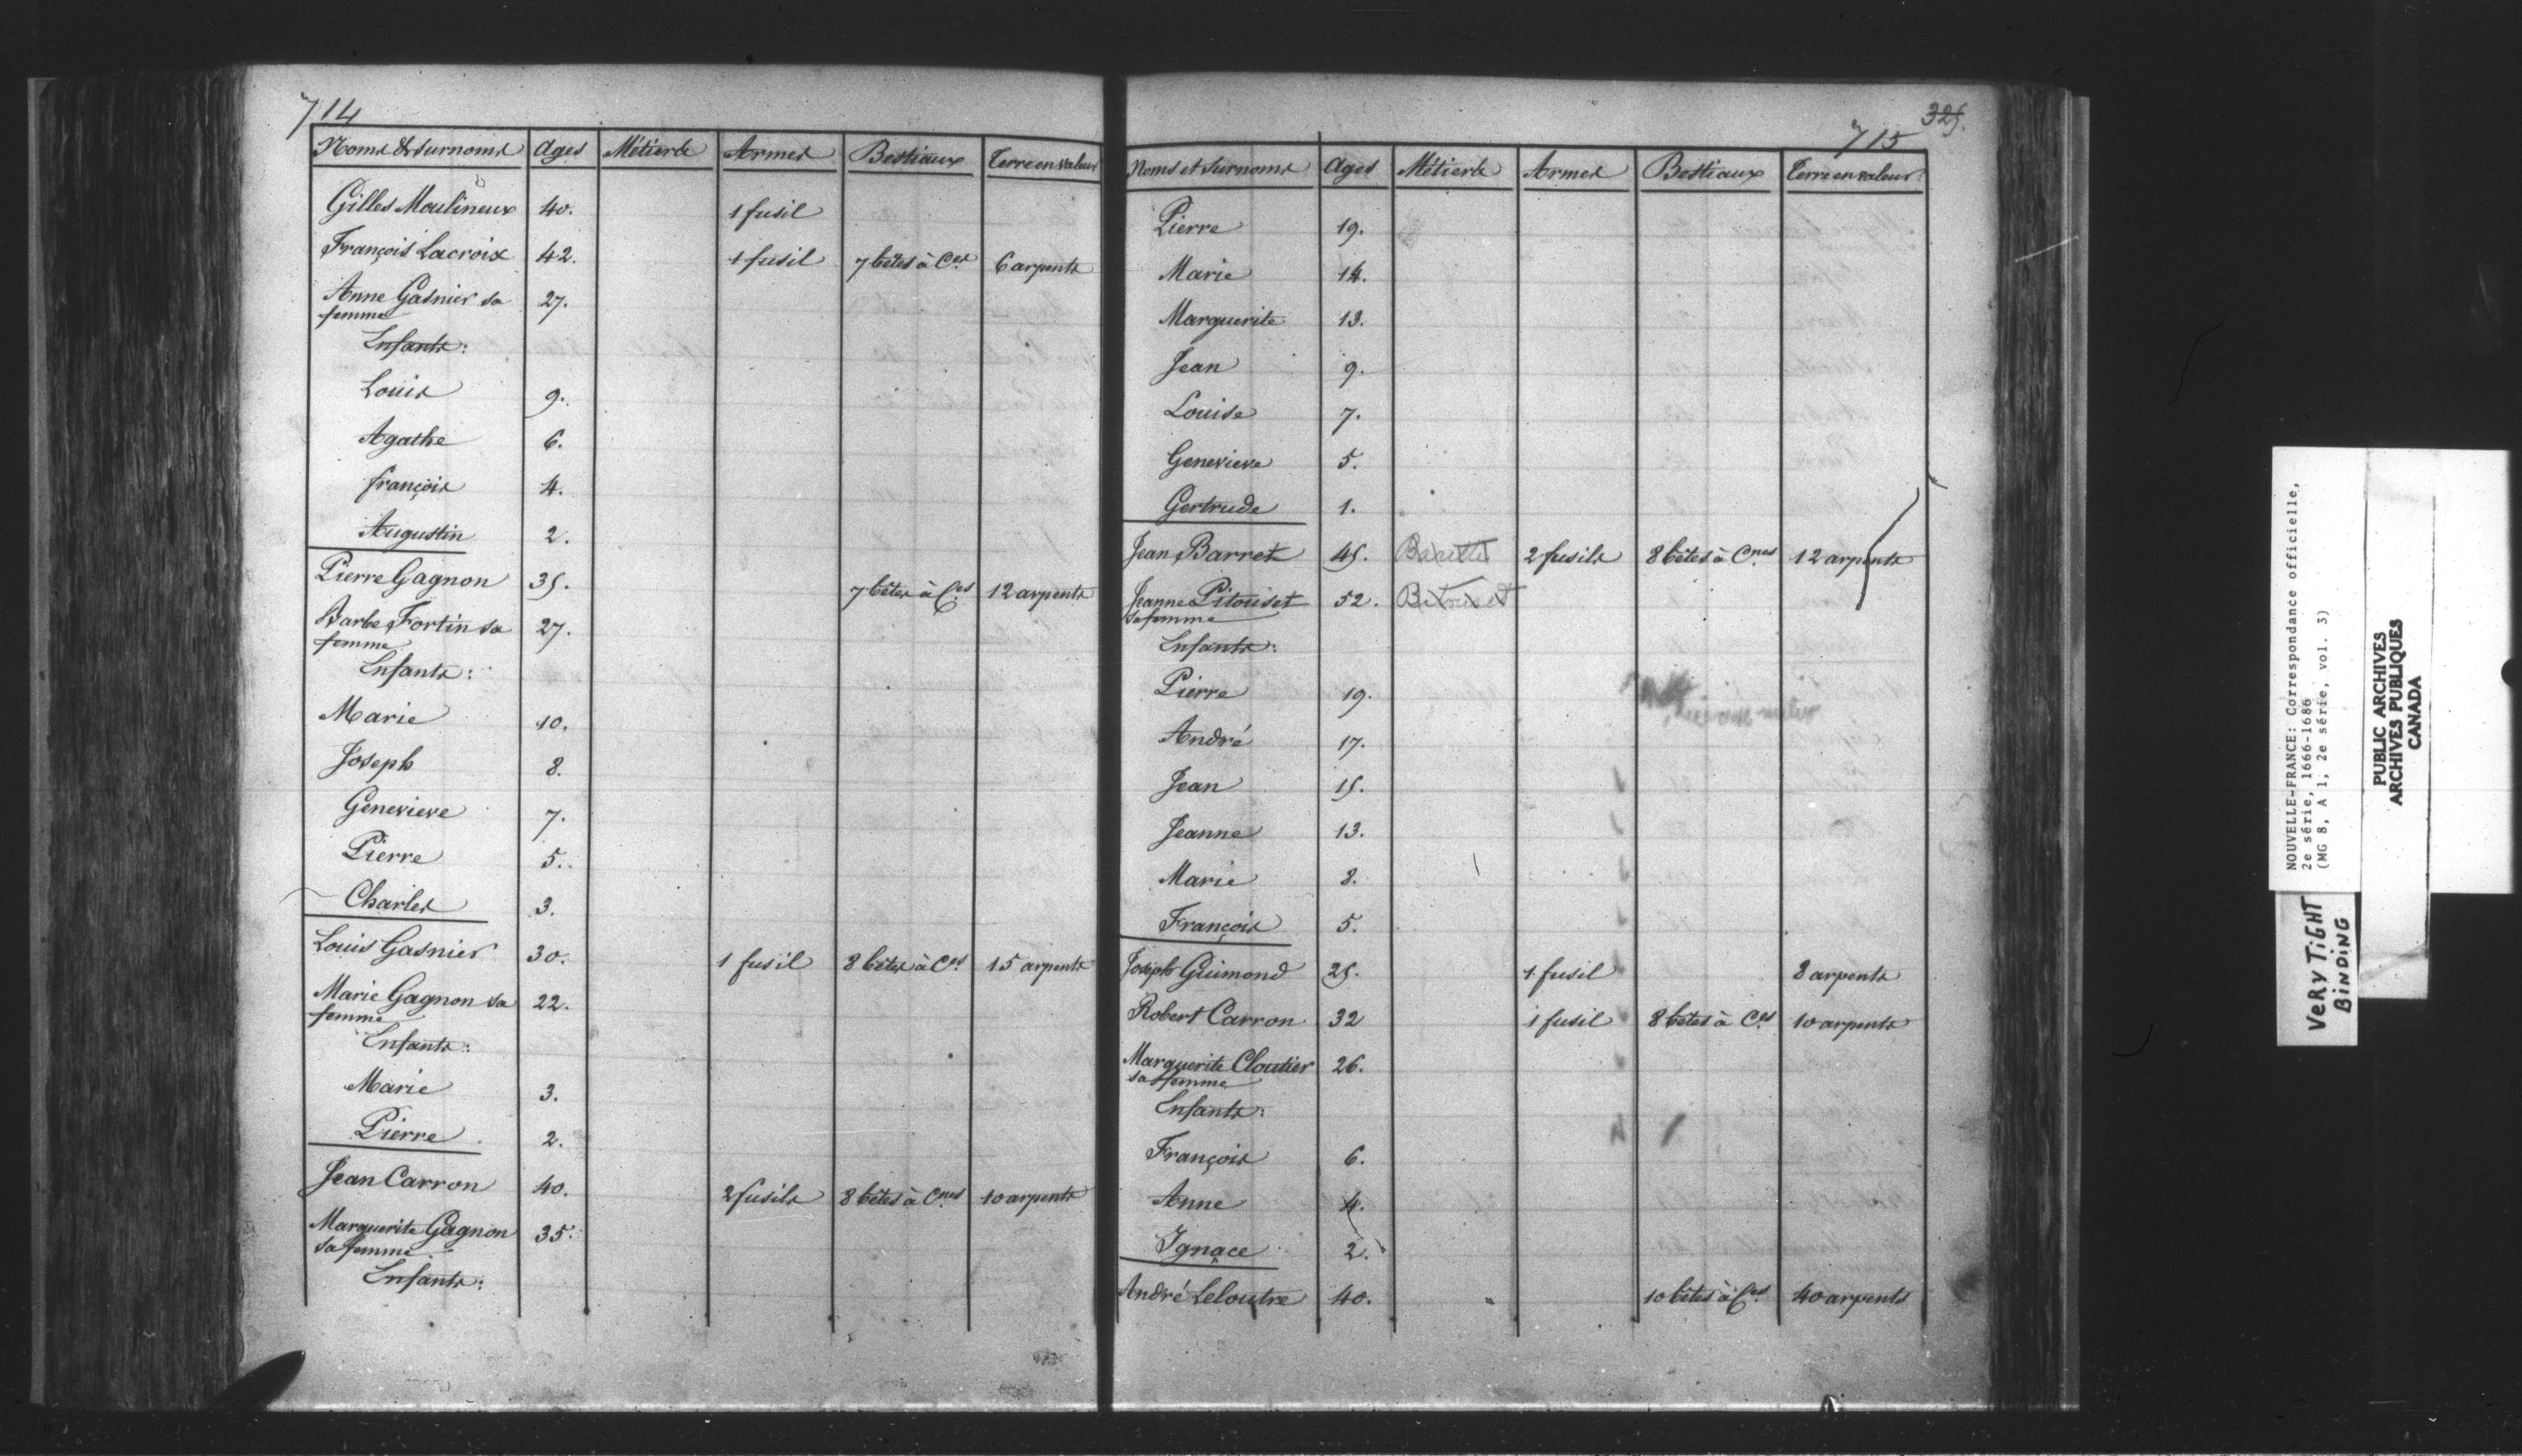 714
Noms & surnoms Ages Métiers Armes Bestiaux Terre en valeur
Gilles Moulineux 40. 1 fusil
François Lacroix 42. 1 fusil 7 bêtes à Ces 6 arpents
Anne Gasnier sa 27.
femme
Enfants:
Louis 9.
Agathe 6.
françois 4.
Augustin 2.
Pierre Gagnon 35. 7 bêtes à Ces 12 arpents
Barbe Fortin sa 27.
femme
Enfants:
Marie 10.
Joseph 8.
Genevieve 7.
Pierre 5.
Charles 3.
Louis Gasnier 30. 1 fusil 8 bêtes à Ces 15 arpents
Marie Gagnon sa 22.
femme
Enfants:
Marie 3.
Pierre 2.
Jean Carron 40. 2 fusils 8 bêtes à Cnes 10 arpents
Marguerite Gagnon 35.
sa femme
Enfants:
325.
715
Noms et surnoms Ages Métiers Armes Bestiaux Terre en valeur
Pierre 19.
Marie 14.
Marguerite 13.
Jean 9.
Louise 7.
Genevieve 5.
Gertrude 1.
Jean Barret 45. 2 fusils 8 bêtes à Cnes 12 arpents
Jeanne Pitouset 52. Bitouset
sa femme
Enfants:
Pierre 19.
André 17.
Jean 15.
Jeanne 13.
Marie 8.
François 5.
Joseph Guimond 25. 1 fusil 8 arpents
Robert Carron 32 1 fusil 8 bêtes à Ces 10 arpents
Marguerite Cloutier 26.
sa femme
Enfants:
François 6.
Anne 4.
Ignace 2.
André Leloutre 40. 10 bêtes à Ces 40 arpents
NOUVELLE-FRANCE: Correspondance officielle,
2e série, 1666-1686
(MG 8, A 1, 2e série, vol. 3)
PUBLIC ARCHIVES
ARCHIVES PUBLIQUES
CANADA
VERY TIGHT
BINDING